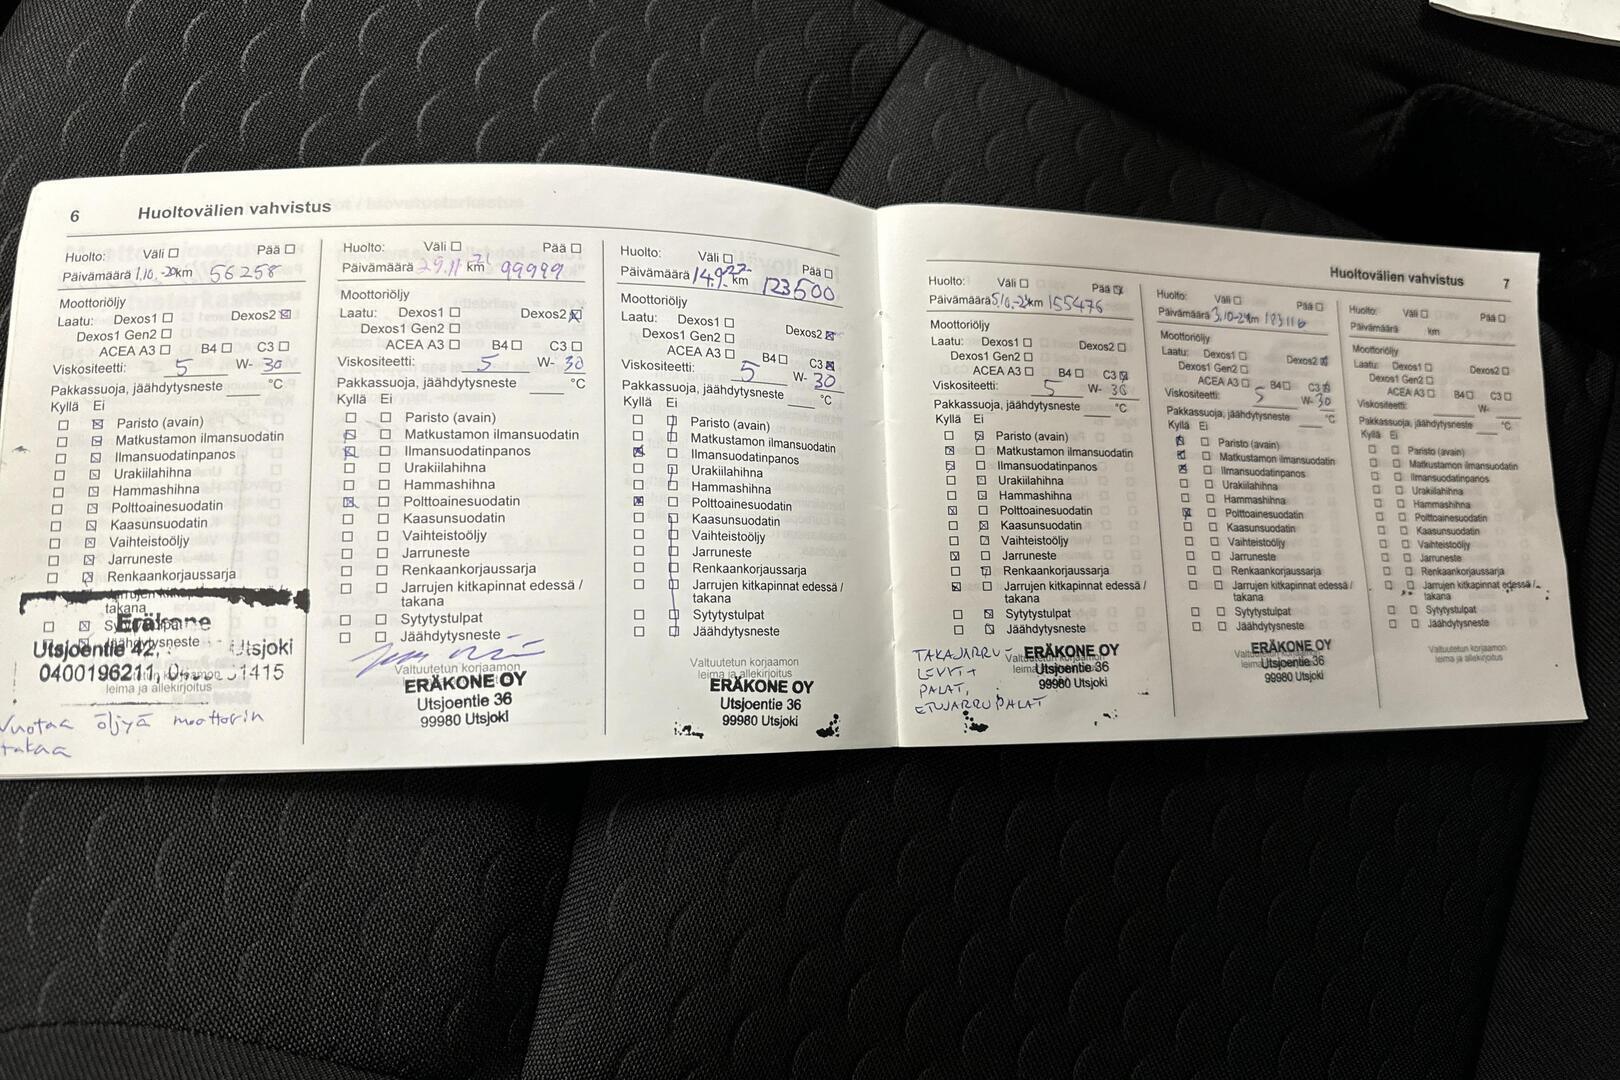 6 Huoltovälien vahvistus
Huolto: Väli Pää
Päivämäärä 1.10.-20 km 56258
Moottoriöljy
Laatu: Dexos1 Dexos2
Dexos1 Gen2
ACEA A3 B4 C3
Viskositeetti: 5 W- 30
Pakkassuoja, jäähdytysneste °C
Kyllä Ei
Paristo (avain)
Matkustamon ilmansuodatin
Ilmansuodatinpanos
Urakiilahihna
Hammashihna
Polttoainesuodatin
Kaasunsuodatin
Vaihteistoöljy
Jarruneste
Renkaankorjaussarja
takana
Eräkone
Jäähdytysneste
Utsjoentie 42, Utsjoki
0400196211, 1415
leima ja allekirjoitus
Vuotaa öljyä moottorin
takaa
Huolto: Väli Pää
Päivämäärä 29.11 21 km 99999
Moottoriöljy
Laatu: Dexos1 Dexos2
Dexos1 Gen2
ACEA A3 B4 C3
Viskositeetti: 5 W- 30
Pakkassuoja, jäähdytysneste °C
Kyllä Ei
Paristo (avain)
Matkustamon ilmansuodatin
Ilmansuodatinpanos
Urakiilahihna
Hammashihna
Polttoainesuodatin
Kaasunsuodatin
Vaihteistoöljy
Jarruneste
Renkaankorjaussarja
Jarrujen kitkapinnat edessä /
takana
Sytytystulpat
Jäähdytysneste
Valtuutetun korjaamon
ERÄKONE OY
Utsjoentie 36
99980 Utsjoki
Huolto: Väli Pää
Päivämäärä 14.9.22 km 123500
Moottoriöljy
Laatu: Dexos1 Dexos2
Dexos1 Gen2
ACEA A3 B4 C3
Viskositeetti: 5 W- 30
Pakkassuoja, jäähdytysneste °C
Kyllä Ei
Paristo (avain)
Matkustamon ilmansuodatin
Ilmansuodatinpanos
Urakiilahihna
Hammashihna
Polttoainesuodatin
Kaasunsuodatin
Vaihteistoöljy
Jarruneste
Renkaankorjaussarja
Jarrujen kitkapinnat edessä /
takana
Sytytystulpat
Jäähdytysneste
Valtuutetun korjaamon
leima ja allekirjoitus
ERÄKONE OY
Utsjoentie 36
99980 Utsjoki
Huoltovälien vahvistus 7
Huolto: Väli Pää
Päivämäärä km 155476
Moottoriöljy
Laatu: Dexos1 Dexos2
Dexos1 Gen2
ACEA A3 B4 C3
Viskositeetti: 5 W- 30
Pakkassuoja, jäähdytysneste °C
Kyllä Ei
Paristo (avain)
Matkustamon ilmansuodatin
Ilmansuodatinpanos
Urakiilahihna
Hammashihna
Polttoainesuodatin
Kaasunsuodatin
Vaihteistoöljy
Jarruneste
Renkaankorjaussarja
Jarrujen kitkapinnat edessä /
takana
Sytytystulpat
Jäähdytysneste
TAKAJARRU-
LEVYT +
PALAT,
ETUJARRUPALAT
ERÄKONE OY
Utsjoentie 36
99980 Utsjoki
Huolto: Väli Pää
Päivämäärä 3.10-24 km 183116
Moottoriöljy
Laatu: Dexos1 Dexos2
Dexos1 Gen2
ACEA A3 B4 C3
Viskositeetti: 5 W- 30
Pakkassuoja, jäähdytysneste °C
Kyllä Ei
Paristo (avain)
Matkustamon ilmansuodatin
Ilmansuodatinpanos
Urakiilahihna
Hammashihna
Polttoainesuodatin
Kaasunsuodatin
Vaihteistoöljy
Jarruneste
Renkaankorjaussarja
Jarrujen kitkapinnat edessä /
takana
Sytytystulpat
Jäähdytysneste
ERÄKONE OY
Utsjoentie 36
99980 Utsjoki
Huolto: Väli Pää
Päivämäärä km
Moottoriöljy
Laatu: Dexos1 Dexos2
Dexos1 Gen2
ACEA A3 B4 C3
Viskositeetti: W-
Pakkassuoja, jäähdytysneste °C
Kyllä Ei
Paristo (avain)
Matkustamon ilmansuodatin
Ilmansuodatinpanos
Urakiilahihna
Hammashihna
Polttoainesuodatin
Kaasunsuodatin
Vaihteistoöljy
Jarruneste
Renkaankorjaussarja
Jarrujen kitkapinnat edessä /
takana
Sytytystulpat
Jäähdytysneste
Valtuutetun korjaamon
leima ja allekirjoitus